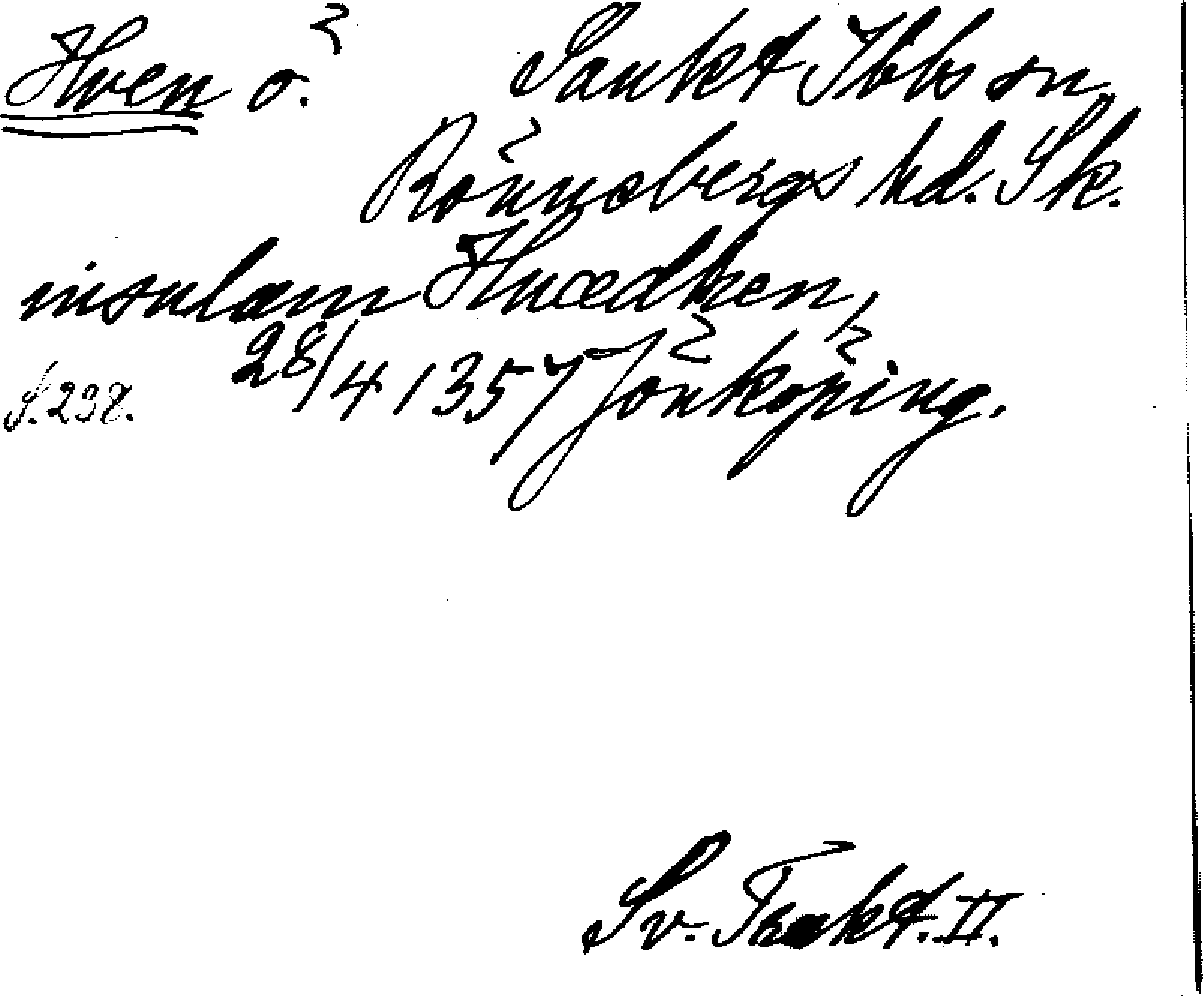 Hven ö. Sankt Ibbs sn
Rönnebergs hd. Sk.
insulam Huædhen,
S. 238. 28/4 1357 Jönköping.
Sv. Trakt. II.